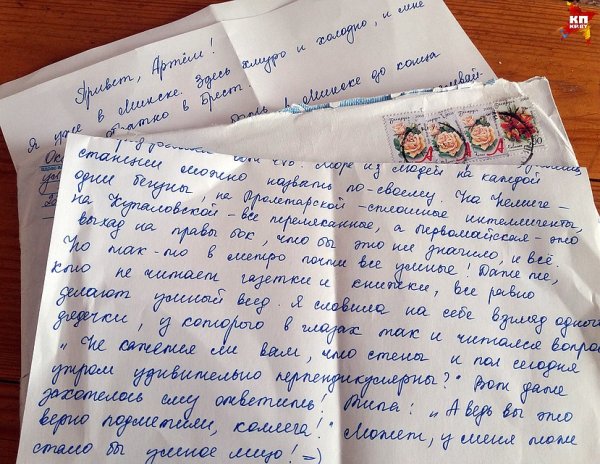 Привет, Артём!
Я уже в Минске. Здесь хмуро и холодно, и мне
обратно в Брест.
в Минске до конца
Ок
КП
KP.BY
что море из людей на каждой
станции можно назвать по-своему. На Немиге –
одни бегуны, на Пролетарской – сплошные интеллигенты,
на Купаловской – все перемешанные, а Первомайская – это
выход на правы бок, что бы это ни значило, и всё.
Но так-то в метро почти все умные! Даже те,
кто не читает газетки и книжки, все равно
делают умный вид. Я словила на себе взгляд одного
дядечки, у которого в глазах так и читался вопрос
„Не кажется ли вам, что стены и пол сегодня
утром удивительно перпендикулярны?" Вот даже
захотелось ему ответить! Типа: „А ведь вы это
верно подметили, коллега!" Может, у меня тоже
стало бы умное лицо! =)